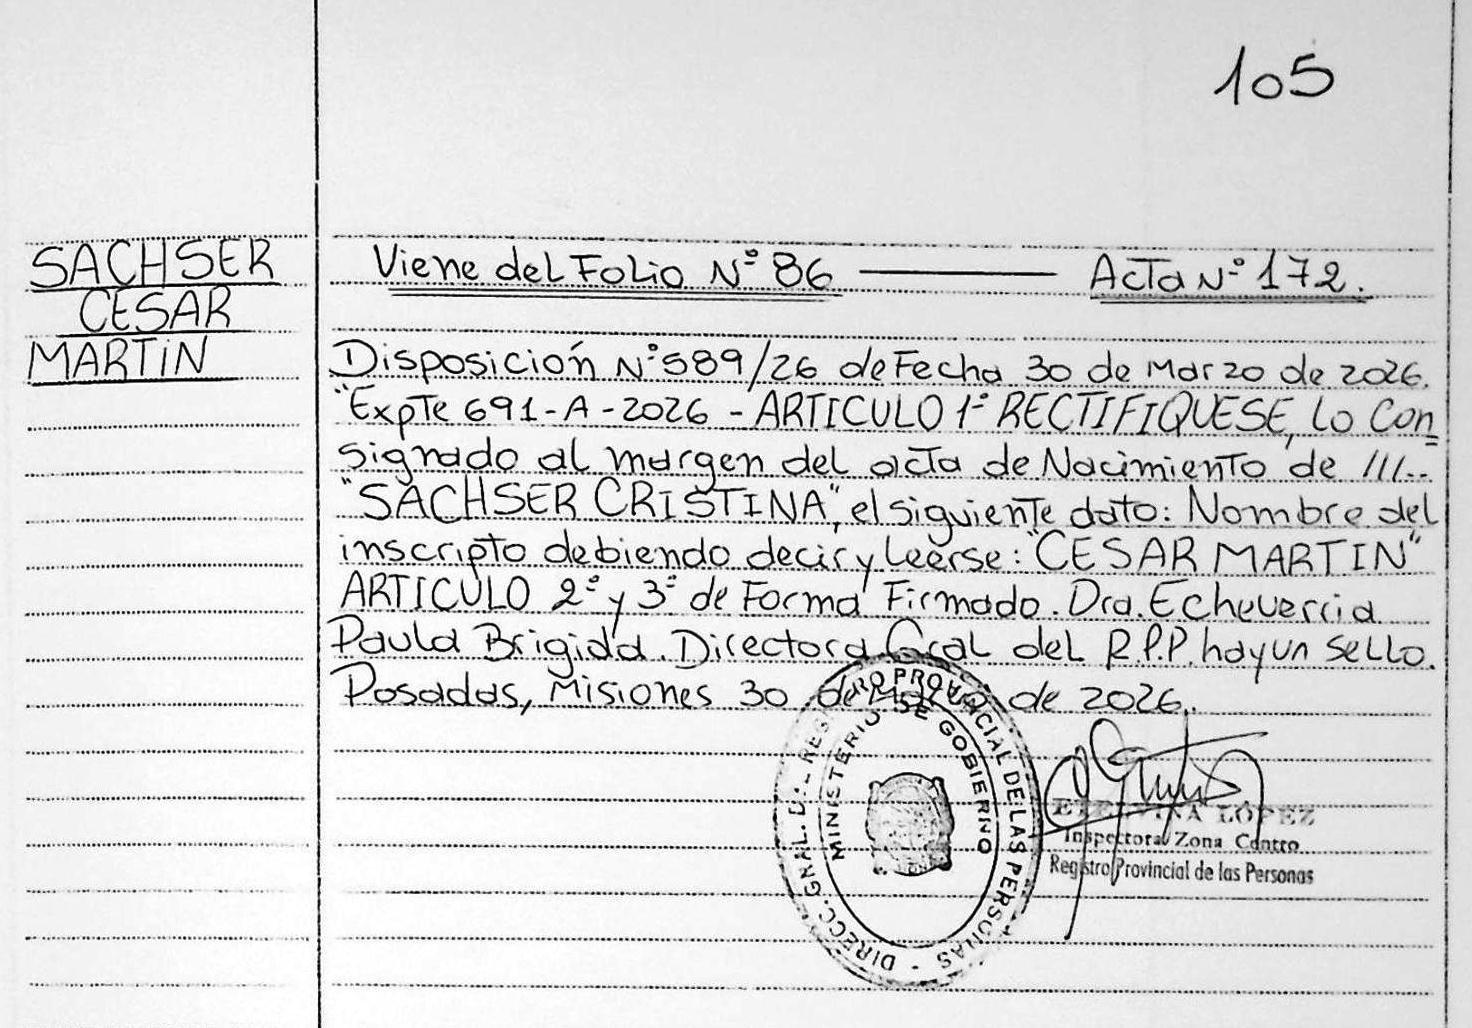 105
SACHSER
CESAR
MARTIN
Viene del Folio N° 86 ——— Acta N° 172.
Disposición N° 589/26 de Fecha 30 de Marzo de 2026.
"Expte 691-A-2026 - ARTICULO 1° RECTIFIQUESE, lo Con=
signado al margen del acta de Nacimiento de III..
"SACHSER CRISTINA", el siguiente dato: Nombre del
inscripto debiendo decir y leerse: "CESAR MARTIN"
ARTICULO 2° y 3° de Forma Firmado. Dra. Echeverria
Paula Brigida. Directora Gral del R.P.P. hay un Sello.
Posadas, Misiones 30 de Marzo de 2026.
DIRECC. GRAL. DEL REGISTRO PROVINCIAL DE LAS PERSONAS -
MINISTERIO DE GOBIERNO
LÓPEZ
Inspectora Zona Centro
Registro Provincial de las Personas